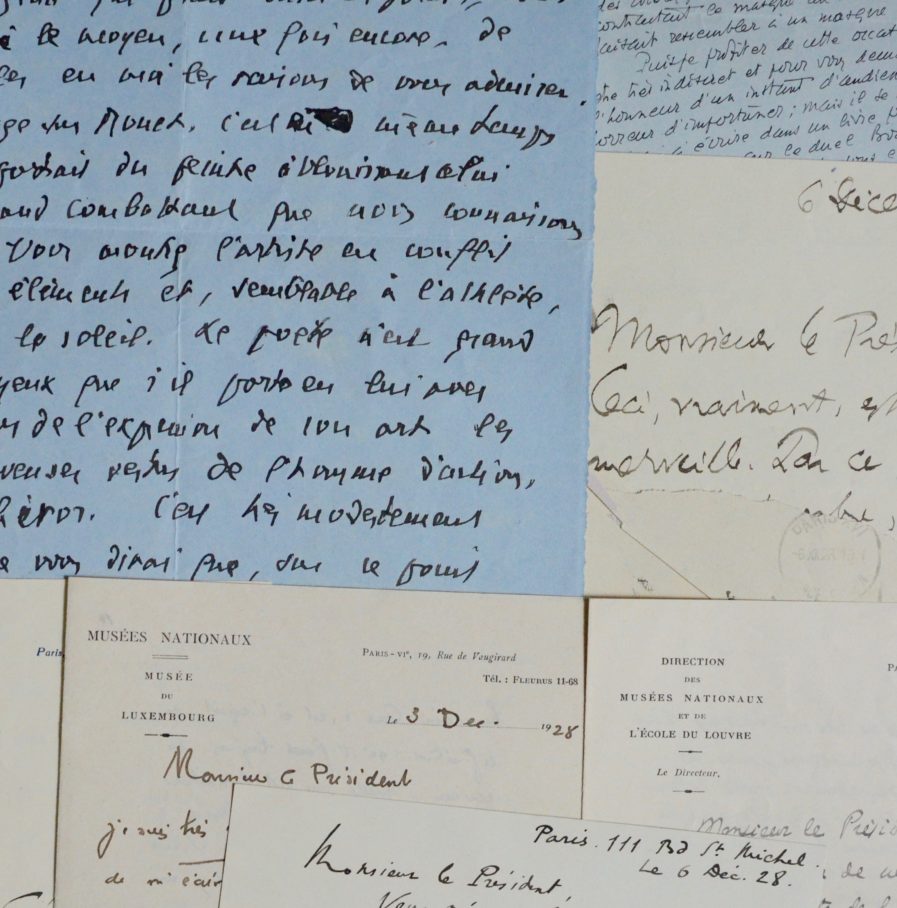 le moyen, une fois encore, de
les raisons de vous admirer.
sur Monet. C'est même temps
portrait du peintre éblouissant celui
combattant que nous connaissons
Vous montre l'artiste en conflit
éléments et, semblable à l'athlète,
le soleil. Le poète n'est grand
yeux que s'il porte en lui avec
de l'expression de son art les
vertus de l'homme d'action,
héros. C'est très modestement
vous dirai que, sur ce point
contractant le masque
faisait ressembler à un masque
Puisse profiter de cette occas
être très indiscret et pour vous dem
l'honneur d'un instant d'audien
horreur d'importuner ; mais il se
écrire dans un livre
sur le duel
6 Déce
Monsieur le Pré
Ceci, vraiment, es
merveille. Par ce
Paris
MUSÉES NATIONAUX
MUSÉE
DU
LUXEMBOURG
PARIS-VIe, 19, Rue de Vaugirard
Tél. : FLEURUS 11-68
Le 3 Dec. 1928
Monsieur le Président
je suis très
de m'écrire
DIRECTION
DES
MUSÉES NATIONAUX
ET DE
L'ÉCOLE DU LOUVRE
Le Directeur,
PA
Monsieur le Préside
de
Paris. 111 Bd St Michel.
Le 6 Déc. 28.
Monsieur le Président,